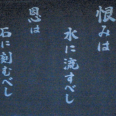 恨みは
水に流すべし
恩は
石に刻むべし